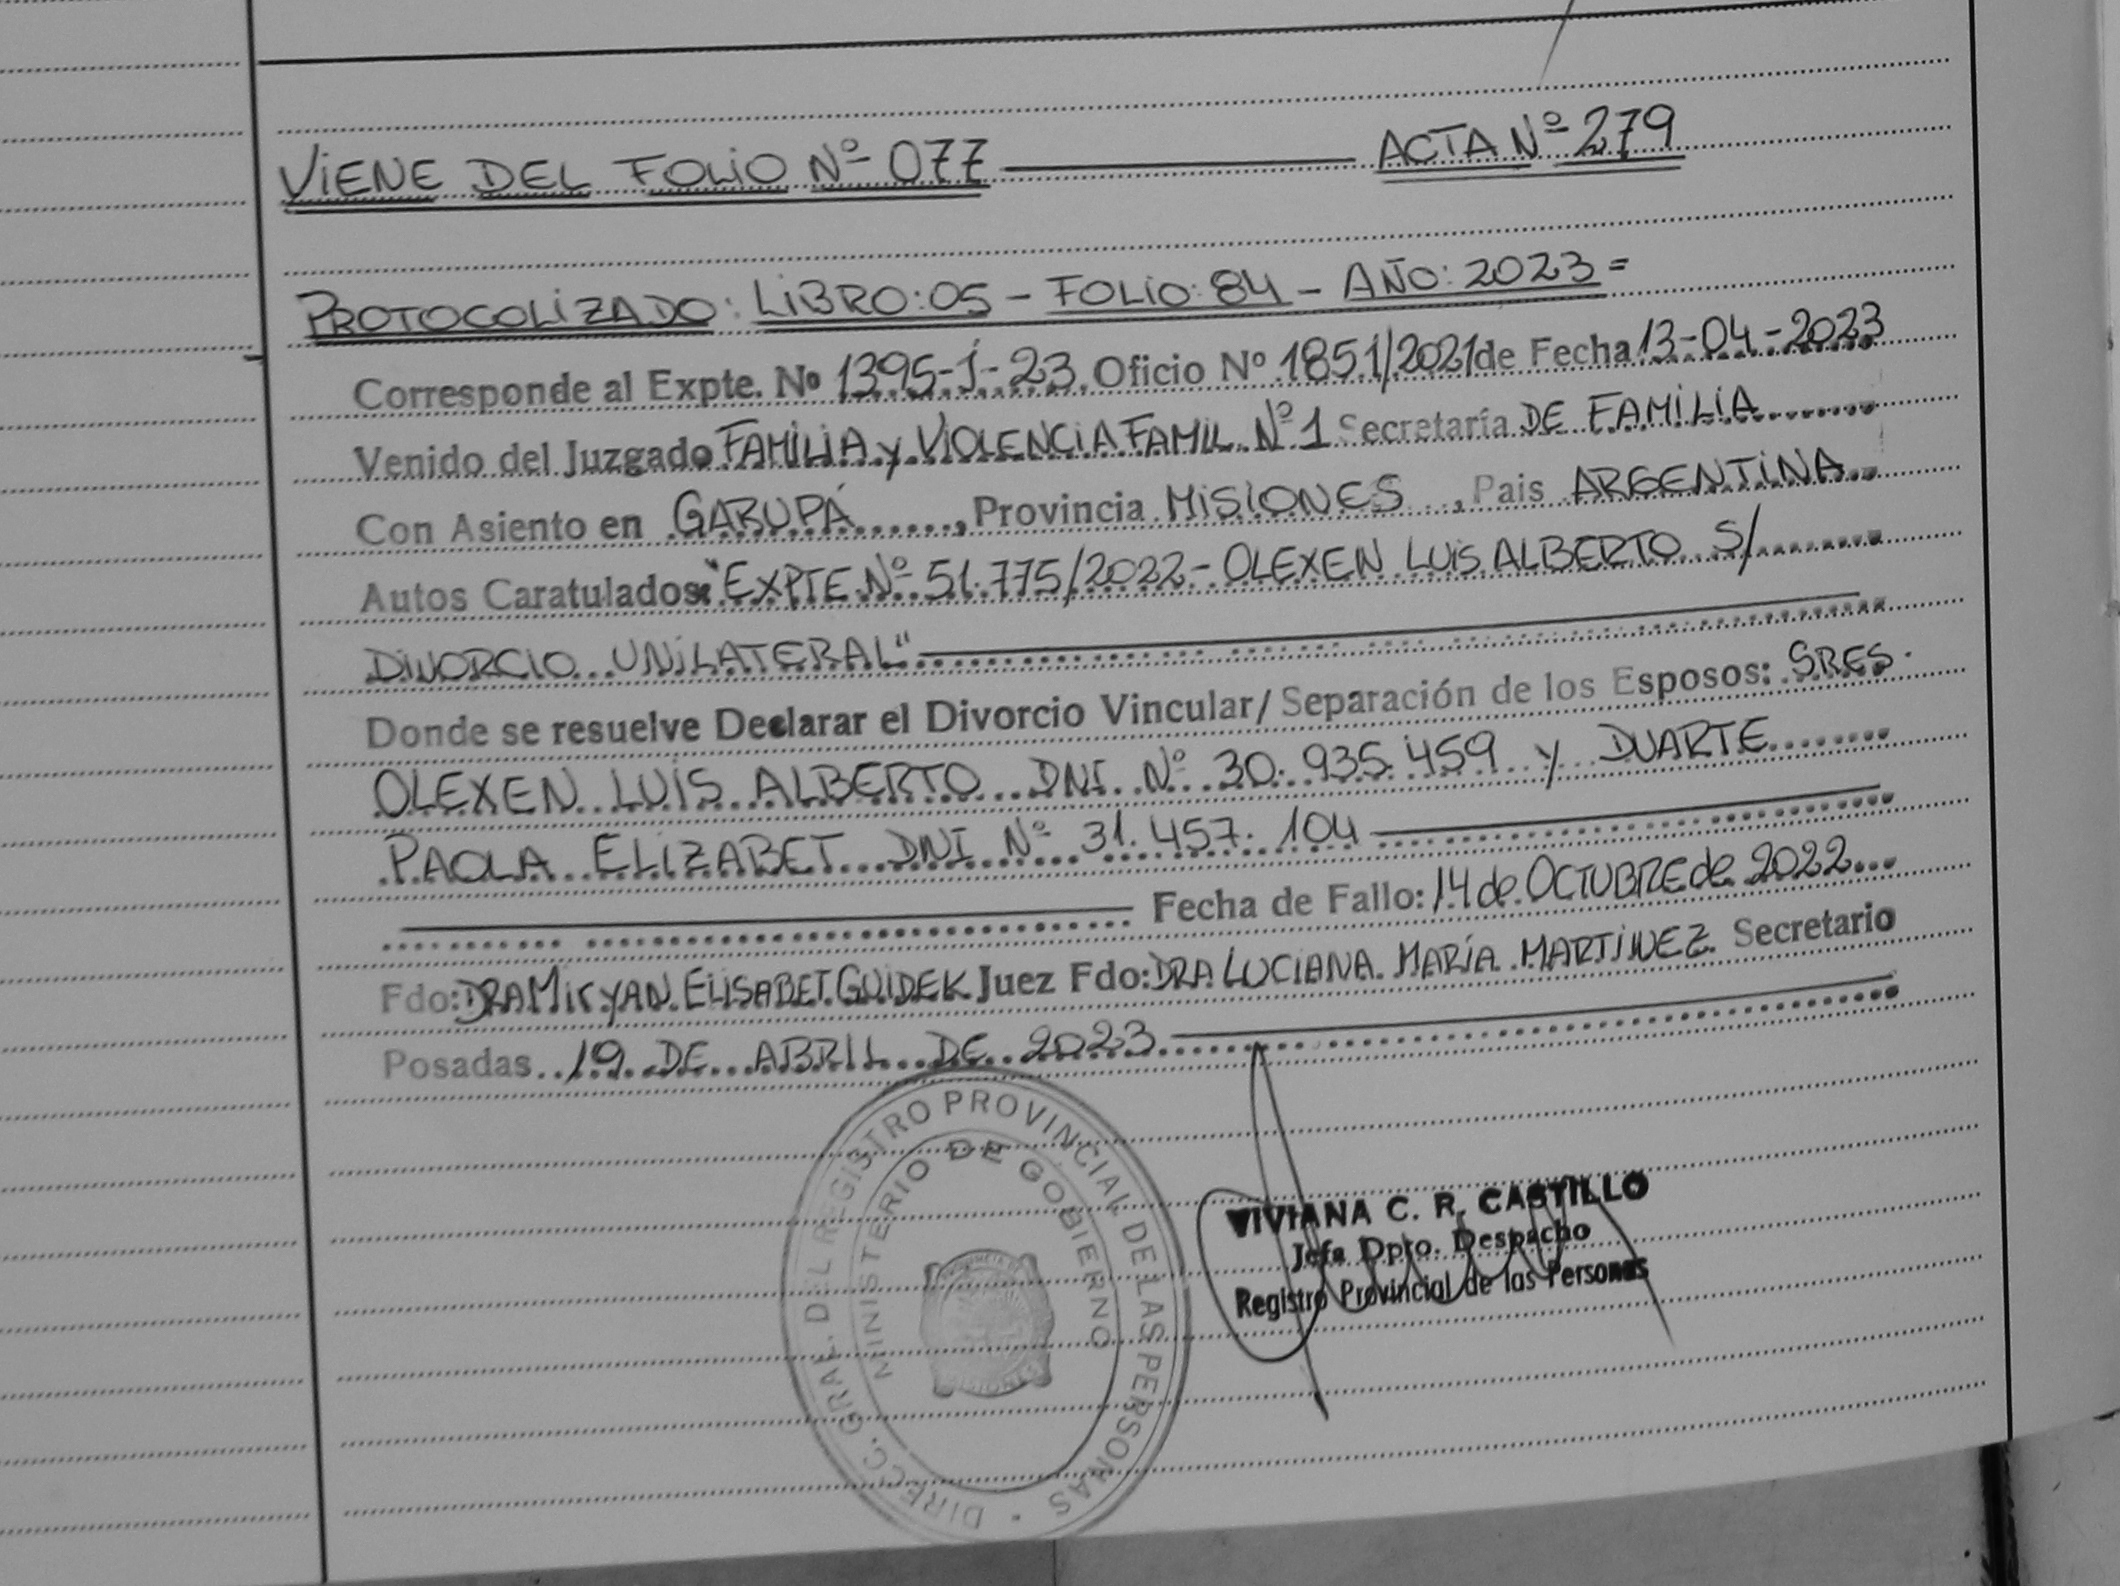 VIENE DEL FOLIO Nº 077 ACTA Nº 279
PROTOCOLIZADO: LIBRO: 05 - FOLIO: 84 - AÑO: 2023 =
Corresponde al Expte. Nº 1395-J-23. Oficio Nº 1851/2021 de Fecha 13-04-2023
Venido del Juzgado FAMILIA y VIOLENCIA FAMIL. Nº 1 Secretaría DE FAMILIA
Con Asiento en GARUPÁ, Provincia MISIONES, Pais ARGENTINA
Autos Caratulados: "EXPTE Nº 51.775/2022 - OLEXEN LUIS ALBERTO S/
DIVORCIO UNILATERAL"
Donde se resuelve Declarar el Divorcio Vincular/ Separación de los Esposos: SRES.
OLEXEN LUIS ALBERTO DNI Nº 30.935.459 y DUARTE
PAOLA ELIZABET DNI Nº 31.457.104
Fecha de Fallo: 14 de OCTUBRE de 2022
Fdo: DRA MIRYAN ELISABET GUIDEK Juez Fdo: DRA LUCIANA MARÍA MARTINEZ Secretario
Posadas 19 DE ABRIL DE 2023
DIRECC. GRAL. DEL REGISTRO PROVINCIAL DE LAS PERSONAS
MINISTERIO DE GOBIERNO
VIVIANA C. R. CASTILLO
Jefa Dpto. Despacho
Registro Provincial de las Personas